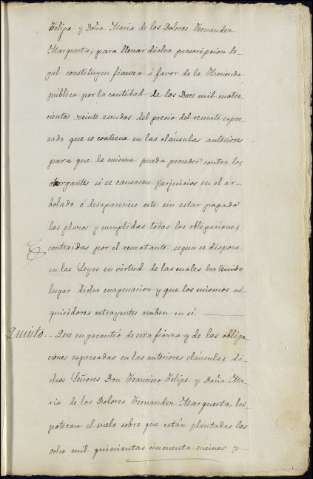 Felipe y Doña Maria de los Dolores Fernandez
Margueta, para llenar dicha prescripcion le-
gal constituyen fianza á favor de la Hacienda
publica por la cantidad de los Doce mil cuatro
cientos veinte escudos del precio del remate expre-
sado que se contiene en las cláusulas anteriores
para que la misma pueda proceder contra los
otorgantes si se causaren perjuicios en el ar-
bolado ó desaparece este sin estar pagados
los plazos y cumplidas todas las obligaciones
contraidas por el rematante segun se dispone
en las Leyes en virtud de las cuales ha tenido
lugar dicha enagenacion y que los mismos ad-
quisidores otorgantes in si.
Quinto. Que en garantia de esta fianza y de las obliga-
ciones expresadas en las anteriores cláusulas di-
chos Señores Don Francisco Felipe y Doña Ma-
ria de los Dolores Fernandez Margueta, hi-
potecan el suelo sobre que están plantados los
ocho mil quinientos cincuenta pinos y